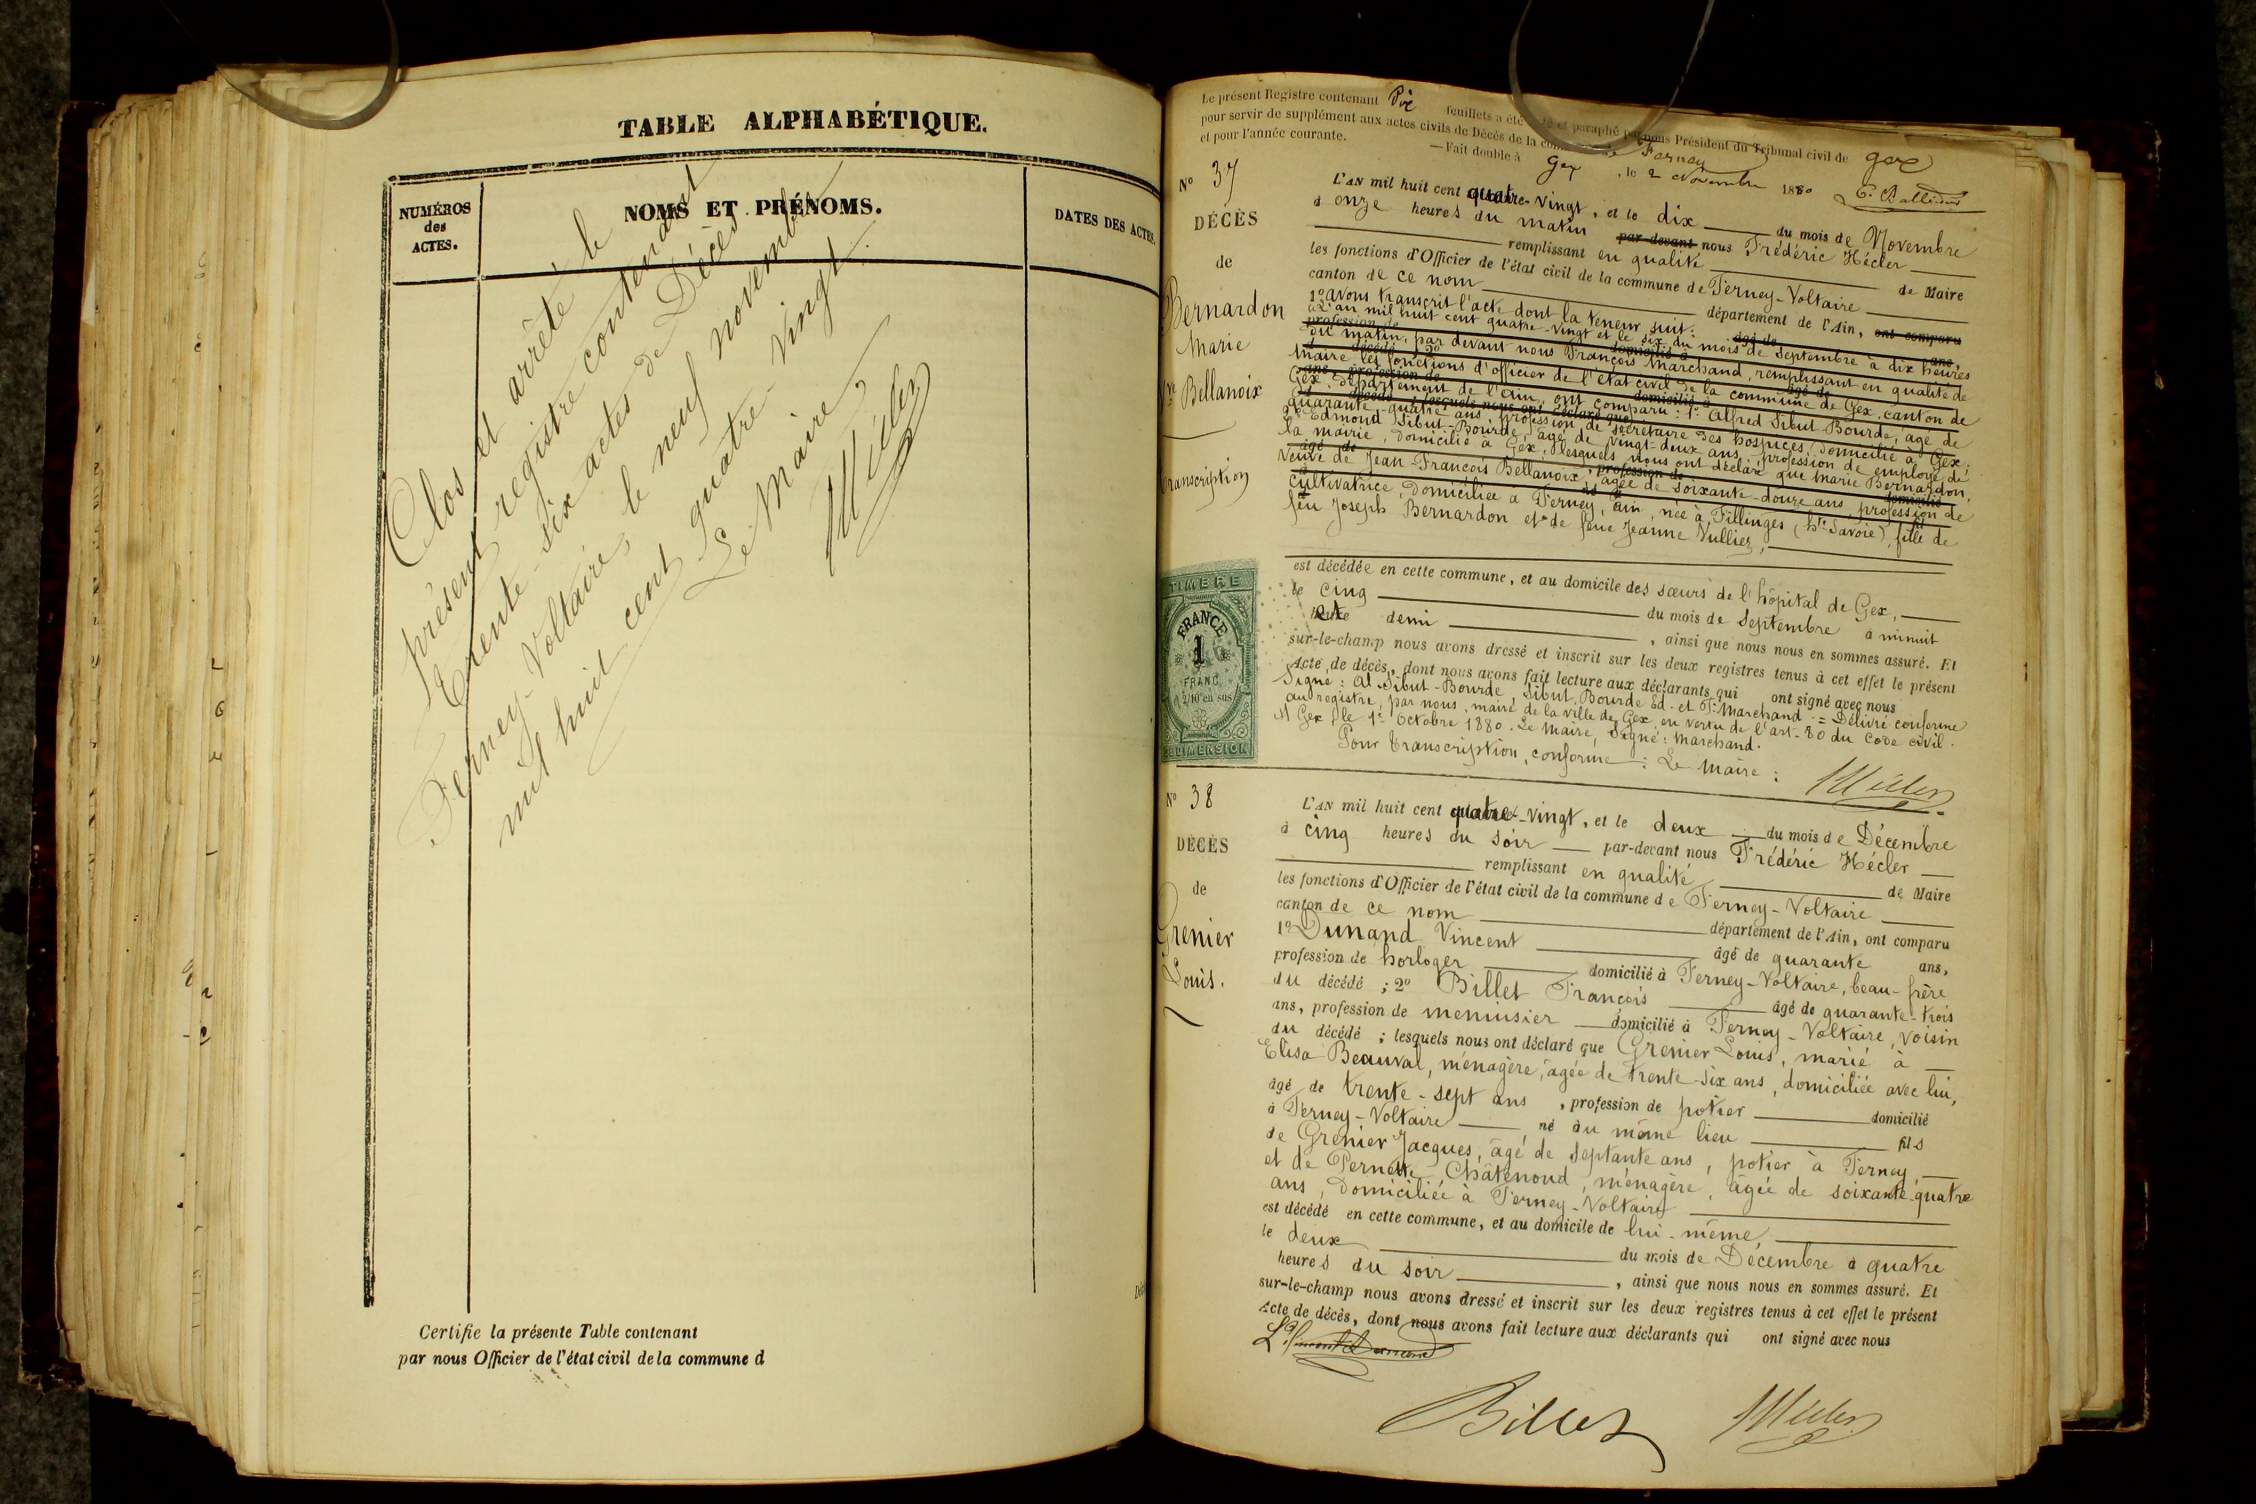 TABLE ALPHABÉTIQUE.
NUMÉROS des ACTES.
NOMS ET PRÉNOMS.
DATES DES ACTES.
Clos et arrêté le
présent registre contenant
trente-six actes de Décès.
Ferney-Voltaire, le neuf novembre
mil huit cent quatre-vingt.
Le Maire,
Hécler
Certifie la présente Table contenant
par nous Officier de l'état civil de la commune d
Le présent Registre contenant feuillets a été et paraphé par nous Président du Tribunal civil de Gex
pour servir de supplément aux actes civils de Décès de la commune de Ferney
et pour l'année courante. — Fait double à Gex, le 2 Novembre 1880
N° 37
DÉCÈS
de
Bernardon
Marie
Vve Bellanoix
Transcription
L'AN mil huit cent quatre-vingt, et le dix du mois de Novembre
à onze heures du matin par-devant nous Frédéric Hécler
remplissant en qualité de Maire
les fonctions d'Officier de l'état civil de la commune de Ferney-Voltaire
canton de ce nom département de l'Ain, ont comparu
1° avons transcrit l'acte dont la teneur suit: âgé de ans,
L'an mil huit cent quatre-vingt et le six du mois de Septembre à dix heures
profession de domicilié à
du matin, par devant nous François Marchand, remplissant en qualité de
d décédé 2° âgé de
Maire les fonctions d'officier de l'état civil de la commune de Gex, canton de
ans profession de domicilié à
Gex, département de l'Ain, ont comparu: 1° Alfred Sibut Bourde, âgé de
d décédé lesquels nous ont déclaré que
quarante-quatre ans, profession de secrétaire des hospices, domicilié à Gex;
2° Edmond Sibut-Bourde, âgé de vingt-deux ans, profession de employé de
la mairie, domicilié à Gex, lesquels nous ont déclaré que Marie Bernardon,
âgé de profession de domicilié
Veuve de Jean-François Bellanoix, âgée de soixante-douze ans, profession de
cultivatrice, domiciliée à Ferney, Ain, née à Fillinges (hte Savoie), fille de
feu Joseph Bernardon et de feue Jeanne Vulliez,
est décédée en cette commune, et au domicile des sœurs de l'hôpital de Gex,
le cinq du mois de Septembre à minuit
et demi, ainsi que nous nous en sommes assuré. Et
sur-le-champ nous avons dressé et inscrit sur les deux registres tenus à cet effet le présent
Acte de décès, dont nous avons fait lecture aux déclarants qui ont signé avec nous
Signé: Al. Sibut-Bourde, Sibut-Bourde Ed. et F. Marchand. = Délivré conforme
au registre, par nous, maire de la ville de Gex, en vertu de l'art. 80 du Code civil.
A Gex, le 1er Octobre 1880. Le Maire, Signé: Marchand.
Pour transcription, conforme: Le Maire:
Hécler
TIMBRE
FRANCE
1
FRANC
2/10 en sus
DIMENSION
N° 38
DÉCÈS
de
Grenier
Louis.
L'AN mil huit cent quatre-vingt, et le deux du mois de Décembre
à cinq heures du soir par-devant nous Frédéric Hécler
remplissant en qualité de Maire
les fonctions d'Officier de l'état civil de la commune de Ferney-Voltaire
canton de ce nom département de l'Ain, ont comparu
1° Dunand Vincent âgé de quarante ans,
profession de horloger domicilié à Ferney-Voltaire, beau-frère
du décédé; 2° Billet François âgé de quarante-trois
ans, profession de menuisier domicilié à Ferney-Voltaire, voisin
du décédé; lesquels nous ont déclaré que Grenier Louis, marié à
Elisa Beauval, ménagère, âgée de trente-six ans, domiciliée avec lui,
âgé de trente-sept ans, profession de potier domicilié
à Ferney-Voltaire né au même lieu fils
de Grenier Jacques, âgé de septante ans, potier à Ferney,
et de Pernette Châtenoud, ménagère, âgée de soixante-quatre
ans, domiciliée à Ferney-Voltaire
est décédé en cette commune, et au domicile de lui-même,
le deux du mois de Décembre à quatre
heures du soir, ainsi que nous nous en sommes assuré. Et
sur-le-champ nous avons dressé et inscrit sur les deux registres tenus à cet effet le présent
Acte de décès, dont nous avons fait lecture aux déclarants qui ont signé avec nous
Billet
Hécler